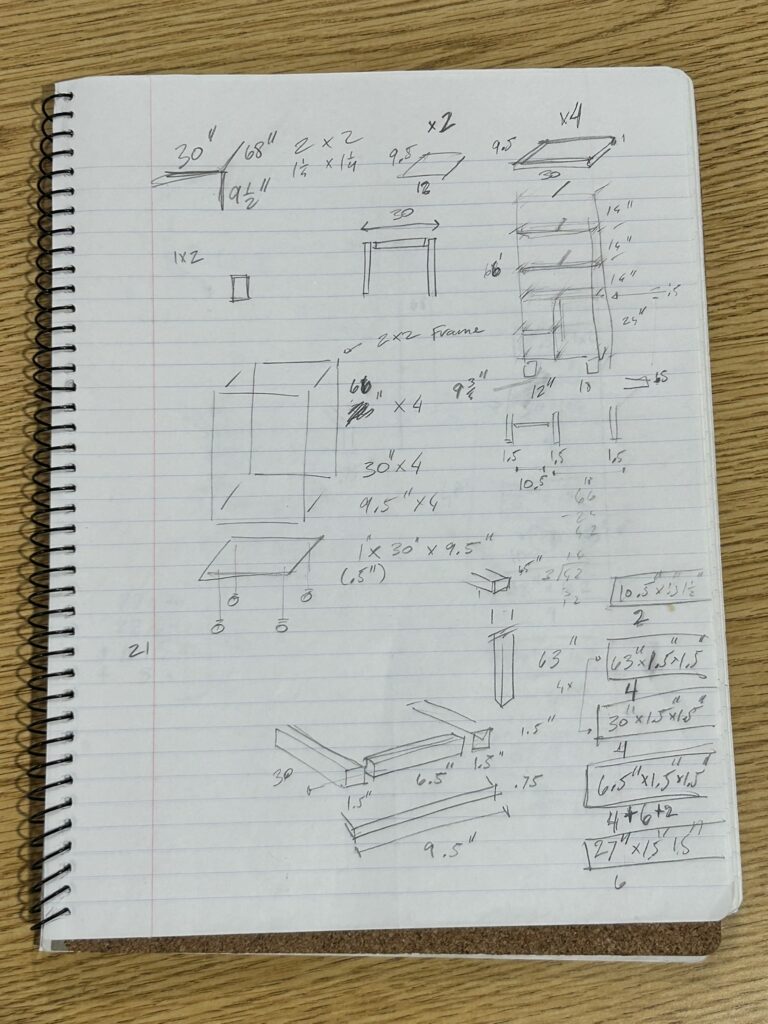 x2
x4
30" 68" 2 x 2
1¼ x 1¼
9½"
9.5
12
9.5
30
1
30
1x2
14"
14"
66"
14"
24"
2x2 Frame
66
" x 4
9¾"
12"
18
30" x 4
1.5 1.5 1.5
10.5"
9.5" x 4
66
- 24
42
1" x 30" x 9.5"
(.5")
14
3/42
3
12
10.5" x 1½"
2
21
63"
4x
63" x 1.5" x 1.5"
4
30" x 1.5" x 1.5"
4
1.5"
1.5"
30
6.5"
1.5"
.75
6.5" x 1.5" x 1.5"
4 + 6 + 2
9.5"
27" x 1.5" 1.5"
6